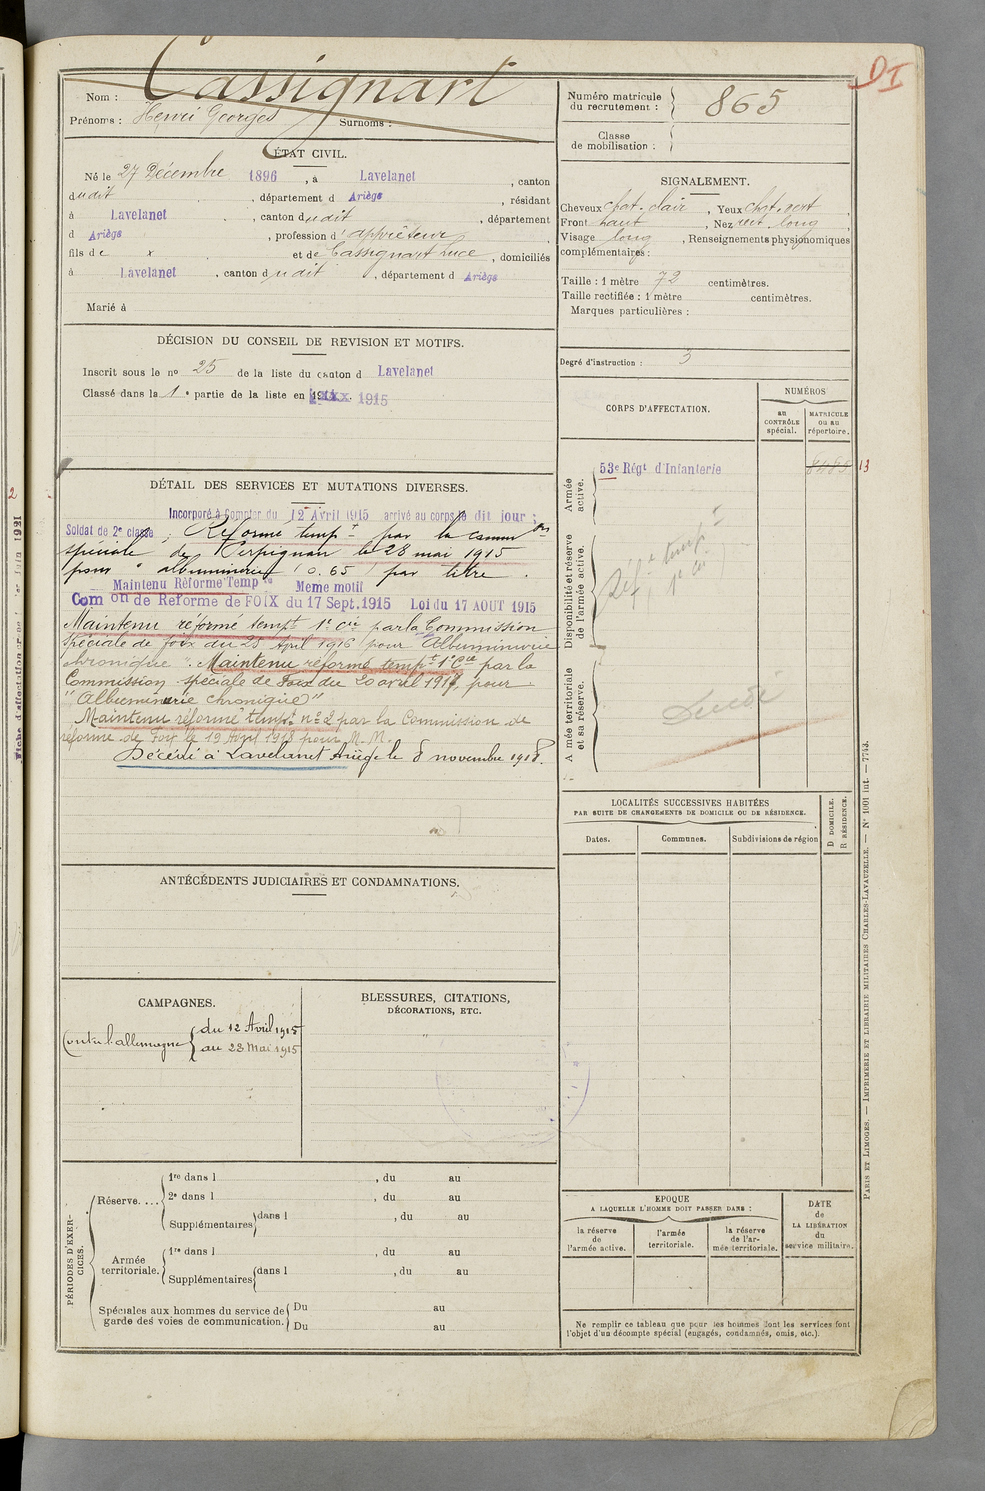 Cassignart
Nom :
Prénoms : Henri Georges Surnoms :
ÉTAT CIVIL.
Né le 27 Décembre 1896, à Lavelanet, canton
dudit, département d Ariège, résidant
à Lavelanet, canton dudit, département
d Ariège, profession d'apprêteur
fils de x et de Cassignart Luce, domiciliés
à Lavelanet, canton dudit, département d Ariège
Marié à
DÉCISION DU CONSEIL DE REVISION ET MOTIFS.
Inscrit sous le no 25 de la liste du canton d Lavelanet
Classé dans la 1e partie de la liste en 1915
DÉTAIL DES SERVICES ET MUTATIONS DIVERSES.
Incorporé à Compter du 12 Avril 1915 arrivé au corps le dit jour ;
Soldat de 2e classe ; Réformé tempt par la common
spéciale de Perpignan le 28 mai 1915
pour " albuminurie (0.65) par litre.
Maintenu Réformé Temp re Meme motif
Com on de Reforme de FOIX du 17 Sept. 1915 Loi du 17 AOUT 1915
Maintenu réformé tempt 1e cie par la Commission
Spéciale de Foix du 28 April 1916 pour Albuminurie
chronique. Maintenu réformé tempt 1e Cie par la
Commission spéciale de Foix du 20 avril 1917, pour
"Albuminurie chronique"
Maintenu réformé tempre n° 2 par la Commission de
réforme de Foix le 19 Avril 1918 pour M. M.
Décédé à Lavelanet Ariège le 8 novembre 1918.
ANTÉCÉDENTS JUDICIAIRES ET CONDAMNATIONS.
CAMPAGNES.
Contre l'allemagne { du 12 Avril 1915
au 28 Mai 1915
BLESSURES, CITATIONS,
DÉCORATIONS, ETC.
PÉRIODES D'EXERCICES.
Réserve....
1re dans l , du au
2e dans l , du au
Supplémentaires dans l , du au
Armée
territoriale.
1re dans l , du au
Supplémentaires dans l , du au
Spéciales aux hommes du service de
garde des voies de communication.
Du au
Du au
D I
Numéro matricule
du recrutement : 865
Classe
de mobilisation :
SIGNALEMENT.
Cheveux chat. clair, Yeux chat. vert,
Front haut, Nez rect. long,
Visage long, Renseignements physionomiques
complémentaires :
Taille : 1 mètre 72 centimètres.
Taille rectifiée : 1 mètre centimètres.
Marques particulières :
Degré d'instruction : 3
CORPS D'AFFECTATION.
NUMÉROS
au
CONTRÔLE
spécial.
MATRICULE
ou au
répertoire.
Armée
active.
53e Régt d'Infanterie
8485 13
Disponibilité et réserve
de l'armée active.
Réf. temp.
1e cie
Armée territoriale
et sa réserve.
Décédé
LOCALITÉS SUCCESSIVES HABITÉES
PAR SUITE DE CHANGEMENTS DE DOMICILE OU DE RÉSIDENCE.
Dates.
Communes.
Subdivisions de région
D DOMICILE.
R RÉSIDENCE.
EPOQUE
A LAQUELLE L'HOMME DOIT PASSER DANS :
la réserve
de
l'armée active.
l'armée
territoriale.
la réserve
de l'ar-
mée territoriale.
DATE
de
LA LIBÉRATION
du
service militaire.
Ne remplir ce tableau que pour les hommes dont les services font
l'objet d'un décompte spécial (engagés, condamnés, omis, etc.).
PARIS ET LIMOGES. — IMPRIMERIE ET LIBRAIRIE MILITAIRES CHARLES-LAVAUZELLE. — N° 1001 int. — 7743.